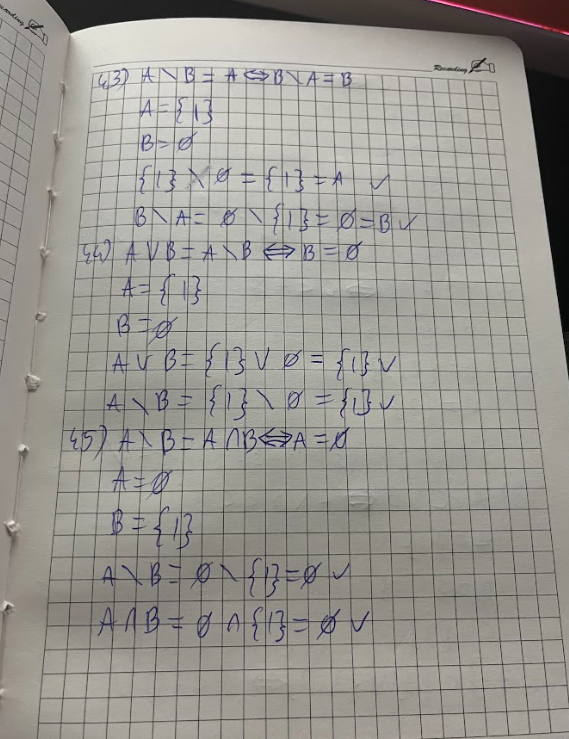 Recording
43) A \ B = A ⇔ B \ A = B
A = {1}
B = ∅
{1} \ ∅ = {1} = A ✓
B \ A = ∅ \ {1} = ∅ = B ✓
44) A ∪ B = A \ B ⇔ B = ∅
A = {1}
B = ∅
A ∪ B = {1} ∪ ∅ = {1} ✓
A \ B = {1} \ ∅ = {1} ✓
45) A \ B = A ∩ B ⇔ A = ∅
A = ∅
B = {1}
A \ B = ∅ \ {1} = ∅ ✓
A ∩ B = ∅ ∩ {1} = ∅ ✓